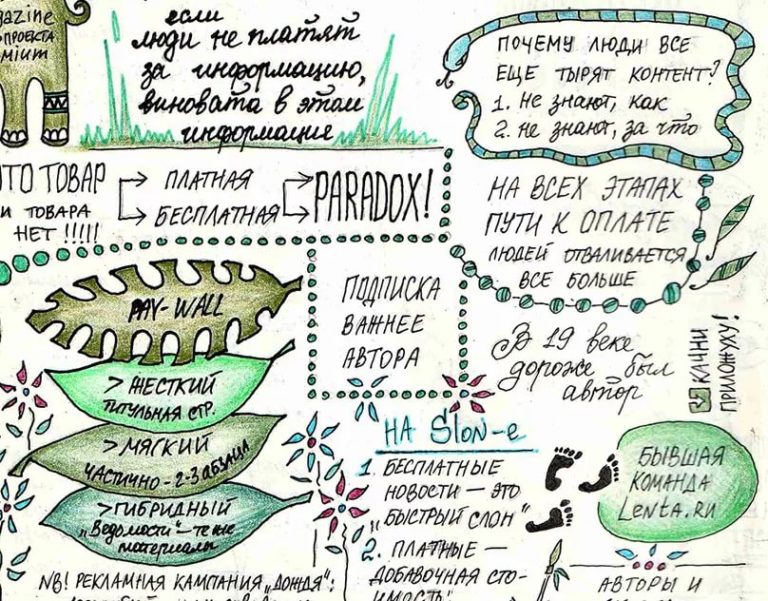 azine
ПРОЕКТА
mium
если
люди не платят
за информацию,
виновата в этом
информация
ПОЧЕМУ ЛЮДИ ВСЕ
ЕЩЕ ТЫРЯТ КОНТЕНТ?
1. Не знают, как
2. не знают, за что
ТО ТОВАР
И ТОВАРА
НЕТ !!!!!
ПЛАТНАЯ
БЕСПЛАТНАЯ
PARADOX!
НА ВСЕХ ЭТАПАХ
ПУТИ К ОПЛАТЕ
ЛЮДЕЙ ОТВАЛИВАЕТСЯ
ВСЕ БОЛЬШЕ
PAY-WALL
> ЖЕСТКИЙ
ТИТУЛЬНАЯ СТР.
> МЯГКИЙ
ЧАСТИЧНО - 2-3 АБЗАЦА
> ГИБРИДНЫЙ
„Ведомости" - те же
материалы
ПОДПИСКА
ВАЖНЕЕ
АВТОРА
В 19 веке
дороже был
автор
КАЧНИ
ПРИЛОЖУХУ!
НА Slon-е
1. БЕСПЛАТНЫЕ
НОВОСТИ — ЭТО
„БЫСТРЫЙ СЛОН"
2. ПЛАТНЫЕ —
ДОБАВОЧНАЯ СТО-
ИМОСТЬ
БЫВШАЯ
КОМАНДА
Lenta.ru
NB! РЕКЛАМНАЯ КАМПАНИЯ „ДОЖДЯ":
АВТОРЫ И